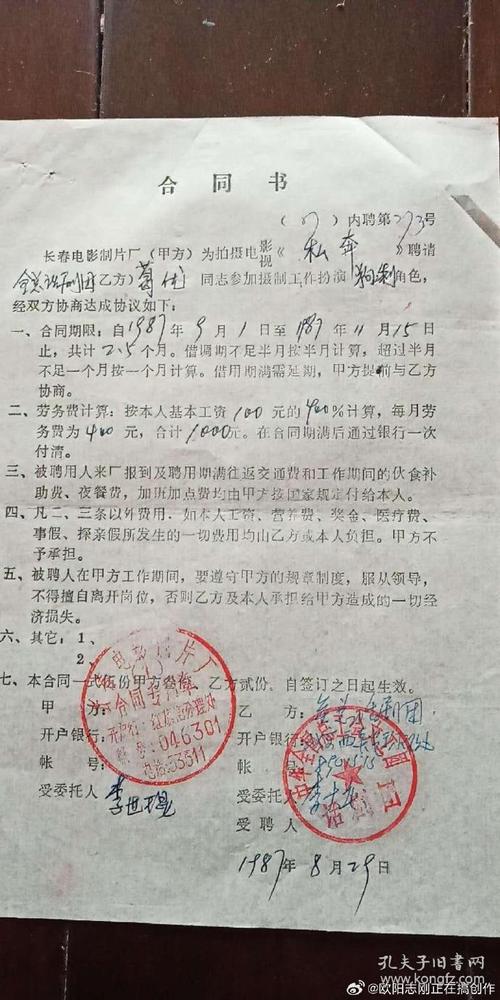 合同书
(87)内聘第273号
长春电影制片厂(甲方)为拍摄电影视《私奔》聘请
全总话剧团乙方)葛优 同志参加摄制工作扮演 角色,
经双方协商达成协议如下:
一、合同期限:自1987年9月1日至1987年11月15日
止,共计2.5个月。借调期不足半月按半月计算,超过半月
不足一个月按一个月计算。借用期满需延期,甲方提前与乙方
协商。
二、劳务费计算:按本人基本工资100元的400%计算,每月劳
务费为400元,合计1000元。在合同期满后通过银行一次
付清。
三、被聘用人来厂报到及聘用期满往返交通费和工作期间的伙食补
助费、夜餐费,加班加点费均由甲方按国家规定付给本人。
四、凡二、三条以外费用,如本人工资、营养费、奖金、医疗费、
事假、探亲假所发生的一切费用均由乙方或本人负担。甲方不
予承担。
五、被聘人在甲方工作期间,要遵守甲方的规章制度,服从领导,
不得擅自离开岗位,否则乙方及本人承担给甲方造成的一切经
济损失。
六、其它:1、
2、
七、本合同一式伍份甲方叁份,乙方贰份,自签订之日起生效。
甲方: 乙方:全总话剧团
开户银行: 开户银行:
帐号: 帐号:
受委托人 李世琨 受委托人
受聘人
1987年8月29日
电影制片厂
合同专用章
046301
电话:53311
话剧团
孔夫子旧书网
@欧阳志刚正在搞创作